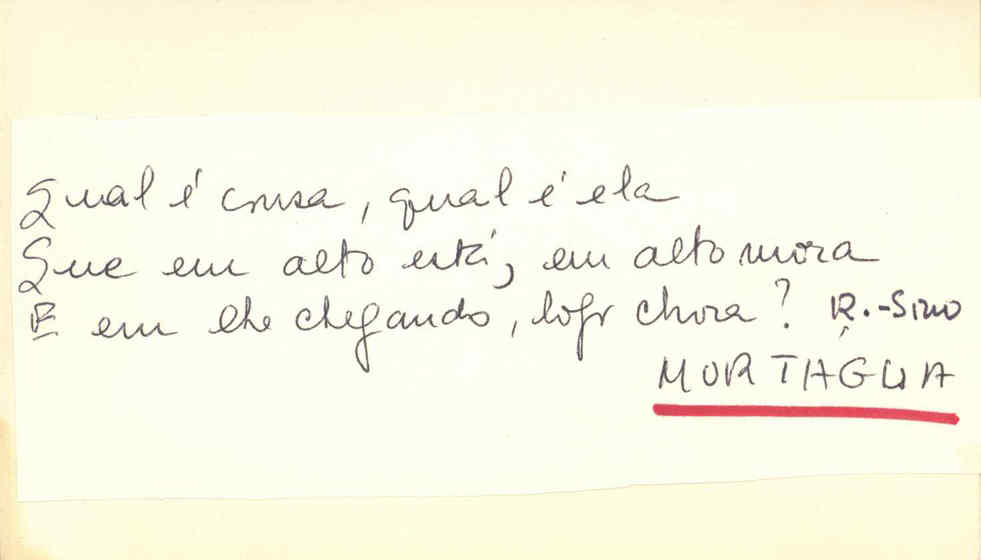 Qual é cousa, qual é ela
Que em alto está, em alto mora
E em lhe chegando, logo chora? R.-Sino
MORTÁGUA